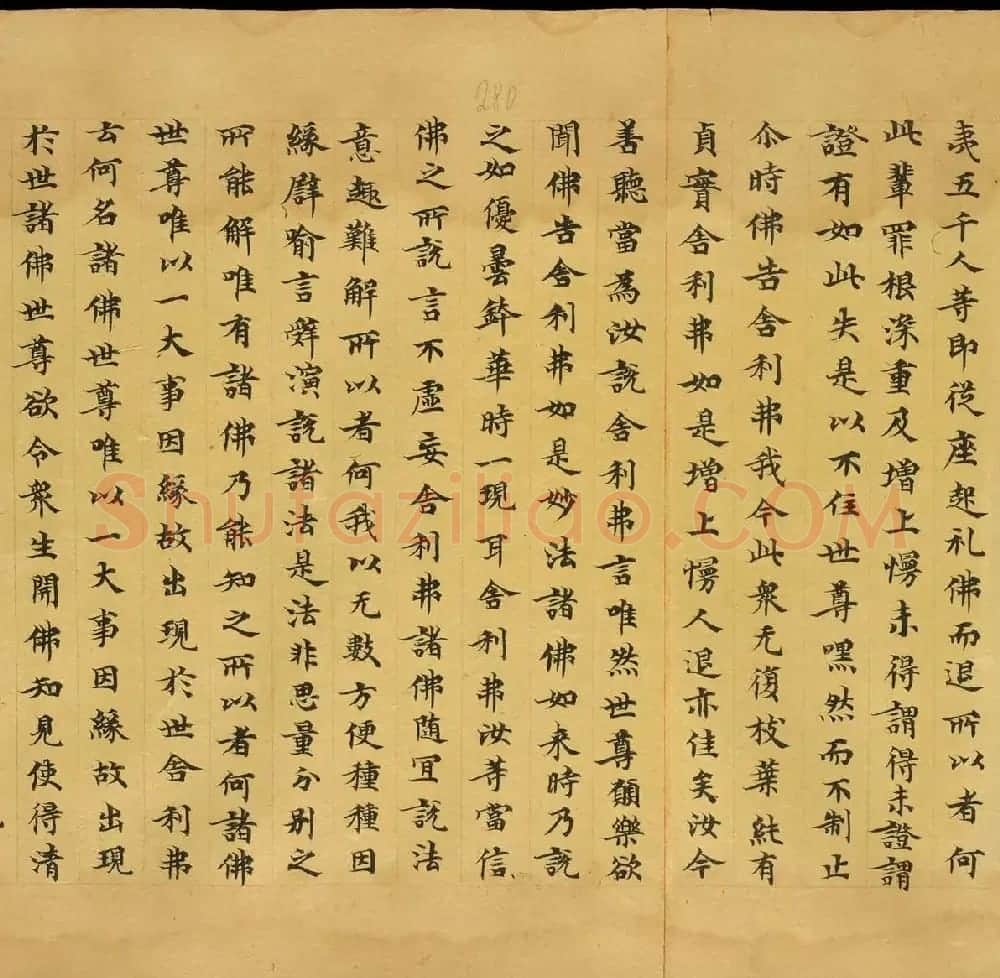 280
夷五千人等即從座起礼佛而退所以者何
此輩罪根深重及增上慢未得謂得未證謂
證有如此失是以不住世尊嘿然而不制止
尒時佛告舍利弗我今此衆无復枝葉純有
貞實舍利弗如是增上慢人退亦佳矣汝今
善聽當為汝說舍利弗言唯然世尊願樂欲
聞佛告舍利弗如是妙法諸佛如来時乃說
之如優曇鉢華時一現耳舍利弗汝等當信
佛之所說言不虛妄舍利弗諸佛随宜說法
意趣難解所以者何我以无數方便種種因
緣譬喻言辝演說諸法是法非思量分別之
所能解唯有諸佛乃能知之所以者何諸佛
世尊唯以一大事因緣故出現於世舍利弗
云何名諸佛世尊唯以一大事因緣故出現
於世諸佛世尊欲令衆生開佛知見使得清
Shufaziliao.COM